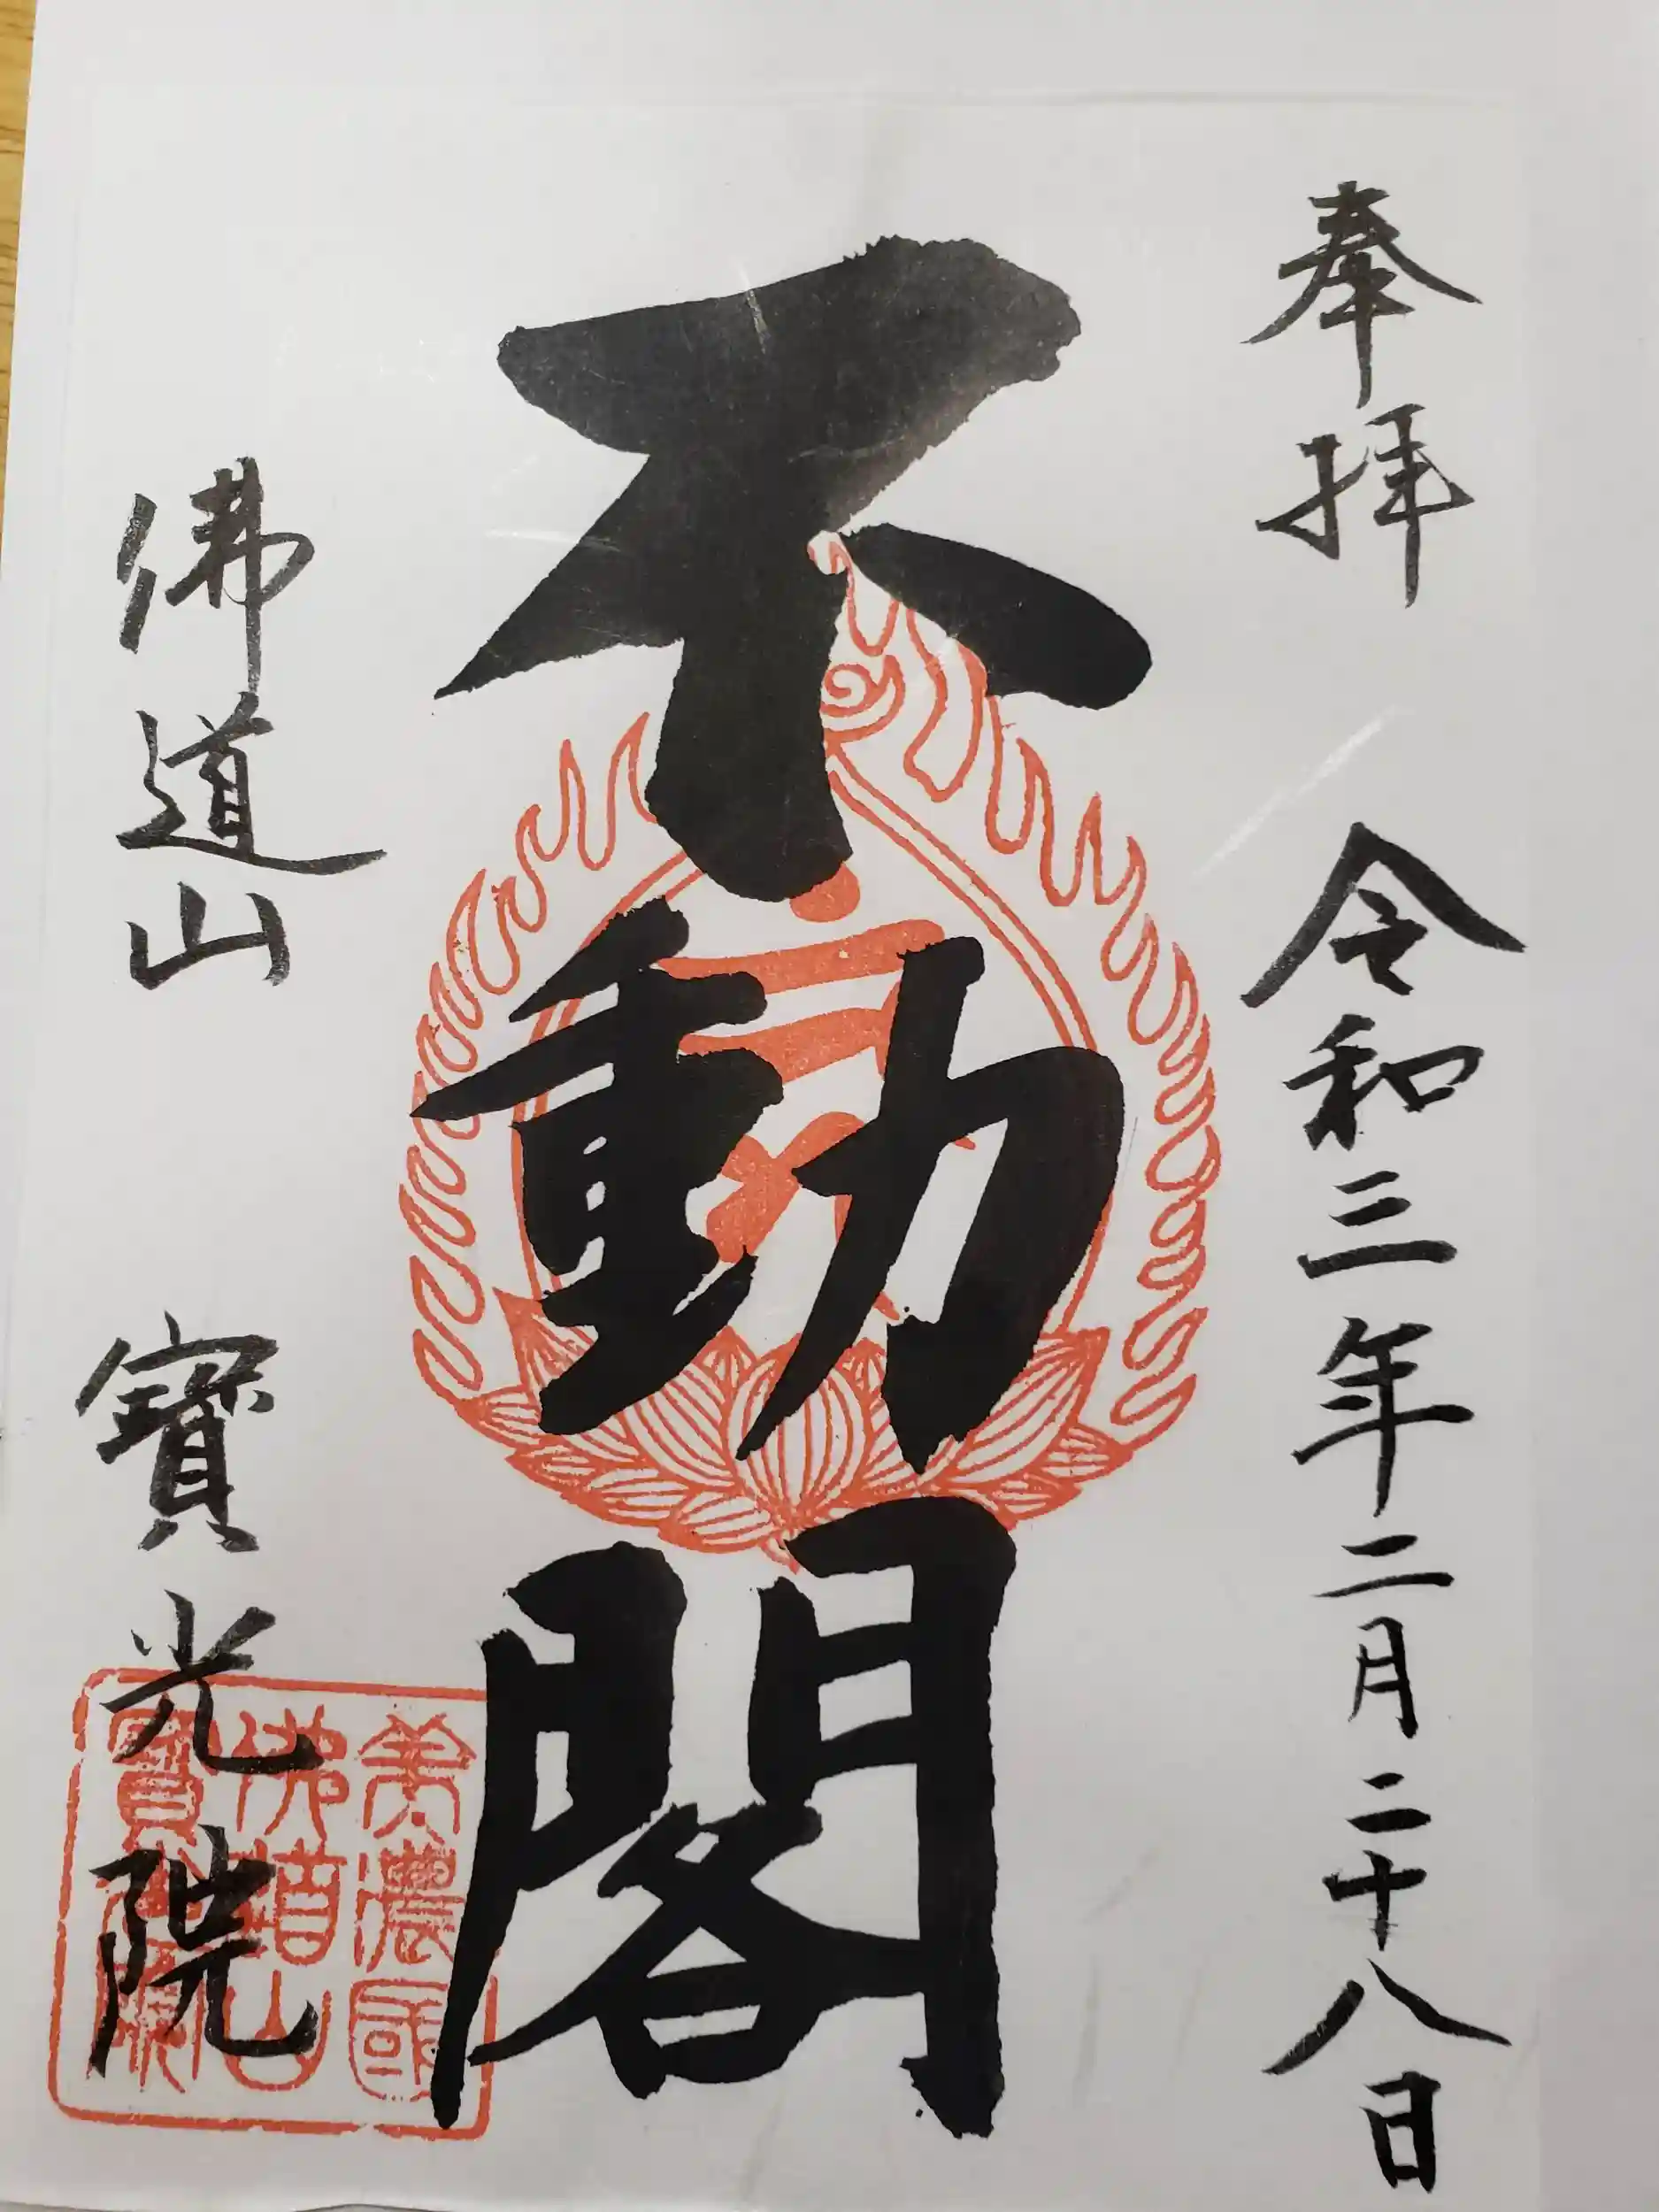 奉拝 令和三年二月二十八日
不動閣
佛道山 寶光院
美濃國
佛道山
寶光院